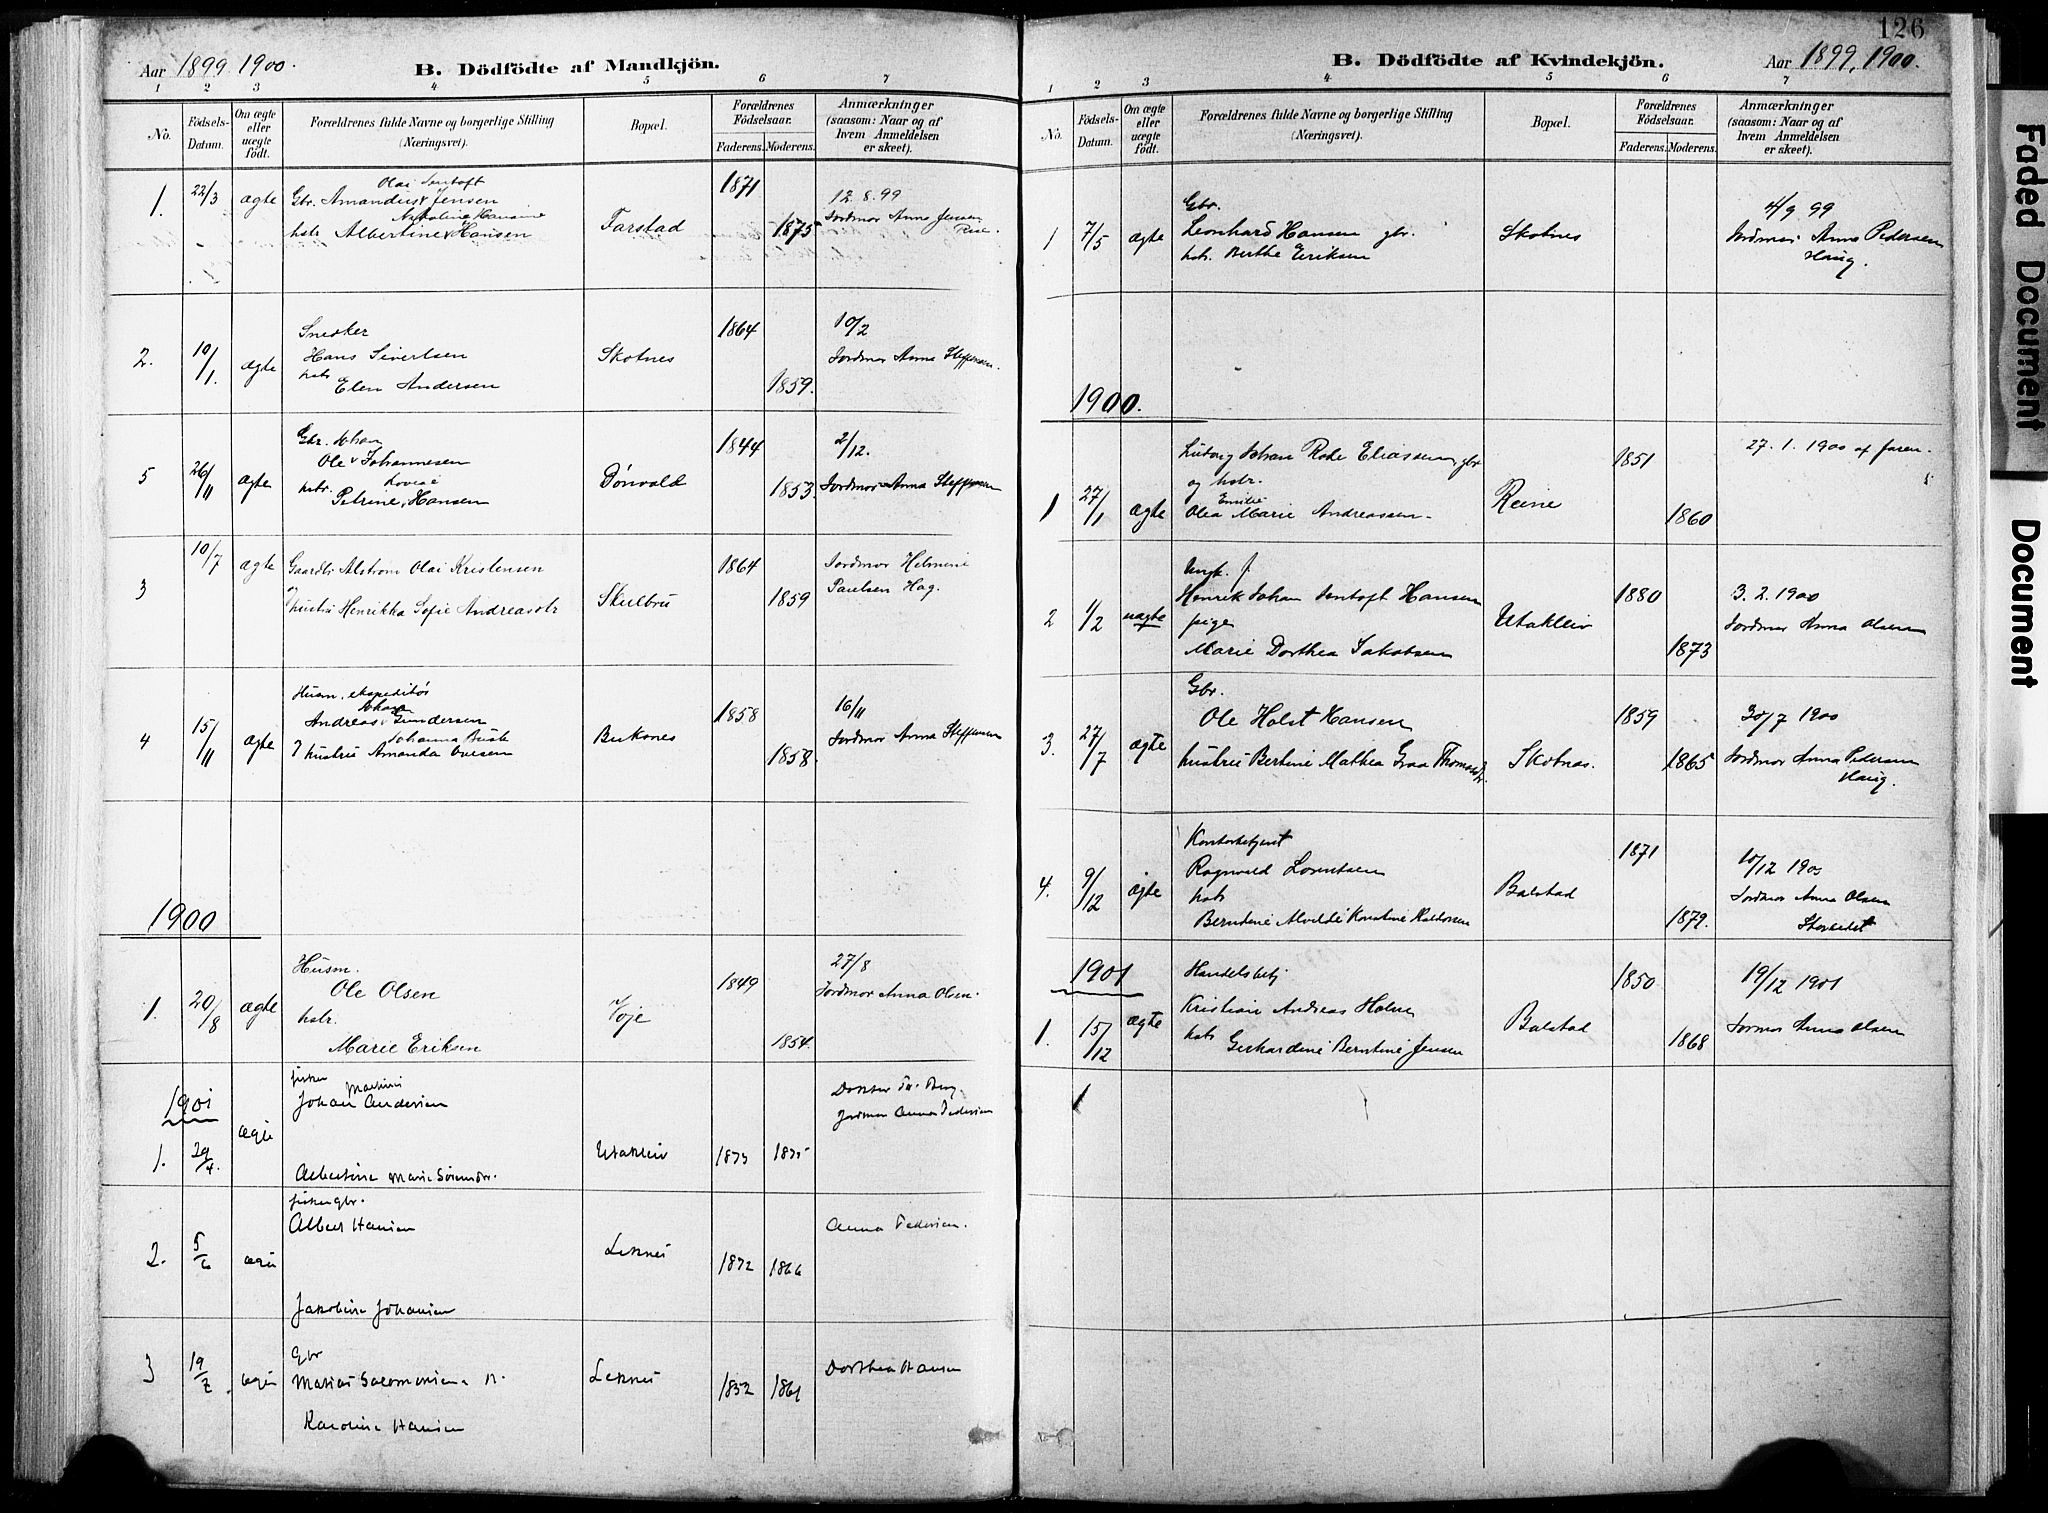 Aar 1899. 1900.
B. Dödfödte af Mandkjön.
1 2 3 4 5 6 7
No.
Födsels-Datum.
Om ægte eller uægte födt.
Forældrenes fulde Navne og borgerlige Stilling (Næringsvei).
Bopæl.
Forældrenes Födselsaar.
Faderens. Moderens.
Anmærkninger (saasom: Naar og af hvem Anmeldelsen er skeet).
1. 22/3 ægte
Olai Sentoft
Gbr. Amandus Jensen
hstr Albertine Hansen
Farstad
1871
1875
12.8.99
Jordmor Anna Jensen
2. 10/1. ægte
Snedker
Hans Sivertsen
hstr
Elen Andersen
Skotnes
1864
1859.
10/2
Jordmor Anna Steffensen.
5 26/11 ægte
Gbr. Johan
Ole Johannesen
hstr. Lovise
Petrine Hansen
Dønvold
1844
1853.
2/12.
Jordmor Anna Steffensen
3 10/7 ægte
Gaardbr Alstrom Olai Kristensen
og
hustru Henrikka Sofie Andreasdtr
Skulbru
1864
1859
Jordmor Helmine
Paulsen Hag.
4 15/11 ægte
Husm. ekspeditør
Johan
Andreas Gundersen
Johanna Busk
hustru Amanda Ovesen
Buksnes
1858
1858.
16/11
Jordmor Anna Steffensen
1900
1. 20/8 ægte
Husm.
Ole Olsen
hstr.
Marie Eriksen
Voje
1849
1854.
27/8
Jordmor Anna Olsen.
1901
1. 29/4. ægte
fisker
Johan Andersen
Albertine Marie Sørensdtr.
Utakleiv
1873 1875
Doktor Fr. Berg.
Jordmor Anna Pedersen
2. 5/6 ægte
fisker gbr.
Albert Hansen
Jakobine Johansen
Leknes
1872 1866
Anna Pedersen.
3 19/7. ægte
Gbr
Marius Salomonsen
Karoline Hansen
Leknes
1852 1861
Dorthea Hansen
126
B. Dödfödte af Kvindekjön.
Aar 1899, 1900.
1 2 3 4 5 6 7
No.
Födsels-Datum.
Om ægte eller uægte födt.
Forældrenes fulde Navne og borgerlige Stilling (Næringsvei).
Bopæl.
Forældrenes Födselsaar.
Faderens. Moderens.
Anmærkninger (saasom: Naar og af hvem Anmeldelsen er skeet).
1 7/5 ægte
Gbr.
Leonhard Hansen gbr.
hstr. Berthe Eriksen
Skotnes
4/9 99
Jordmor Anna Pedersen
Haug.
1900.
1 27/1 ægte
Ludvig Johan Rode Eliassen, gbr
og hstr.
Emilie
Olea Marie Andreassen.
Reine
1851
1860
27.1.1900 af faren.
2 1/2 uægte
Ungk. f.
Henrik Johan Sentoft Hansen
pige
Marie Dorthea Jakobsen
Utakleiv
1880
1873
3.2.1900
Jordmor Anna Olsen
3. 27/7 ægte
Gbr.
Ole Holst Hansen
hustru Bertine Mathea Graa Thomasdtr.
Skotnes.
1859
1865
30/7 1900
Jordmor Anna Pedersen
Haug.
4. 9/12 ægte
Kontorbetjent
Ragnvald Lorentsen
hstr
Berntine Alvilde Konstine Haldorsen
Balstad
1871
1879.
10/12 1900
Jordmor Anna Olsen
1901
1. 15/12 ægte
Handelsbetj
Kristian Andreas Holm
hstr
Gerhardine Berntine Jensen
Balstad
1850
1868
19/12 1901
Jormor Anna Olsen
Faded Document
Document